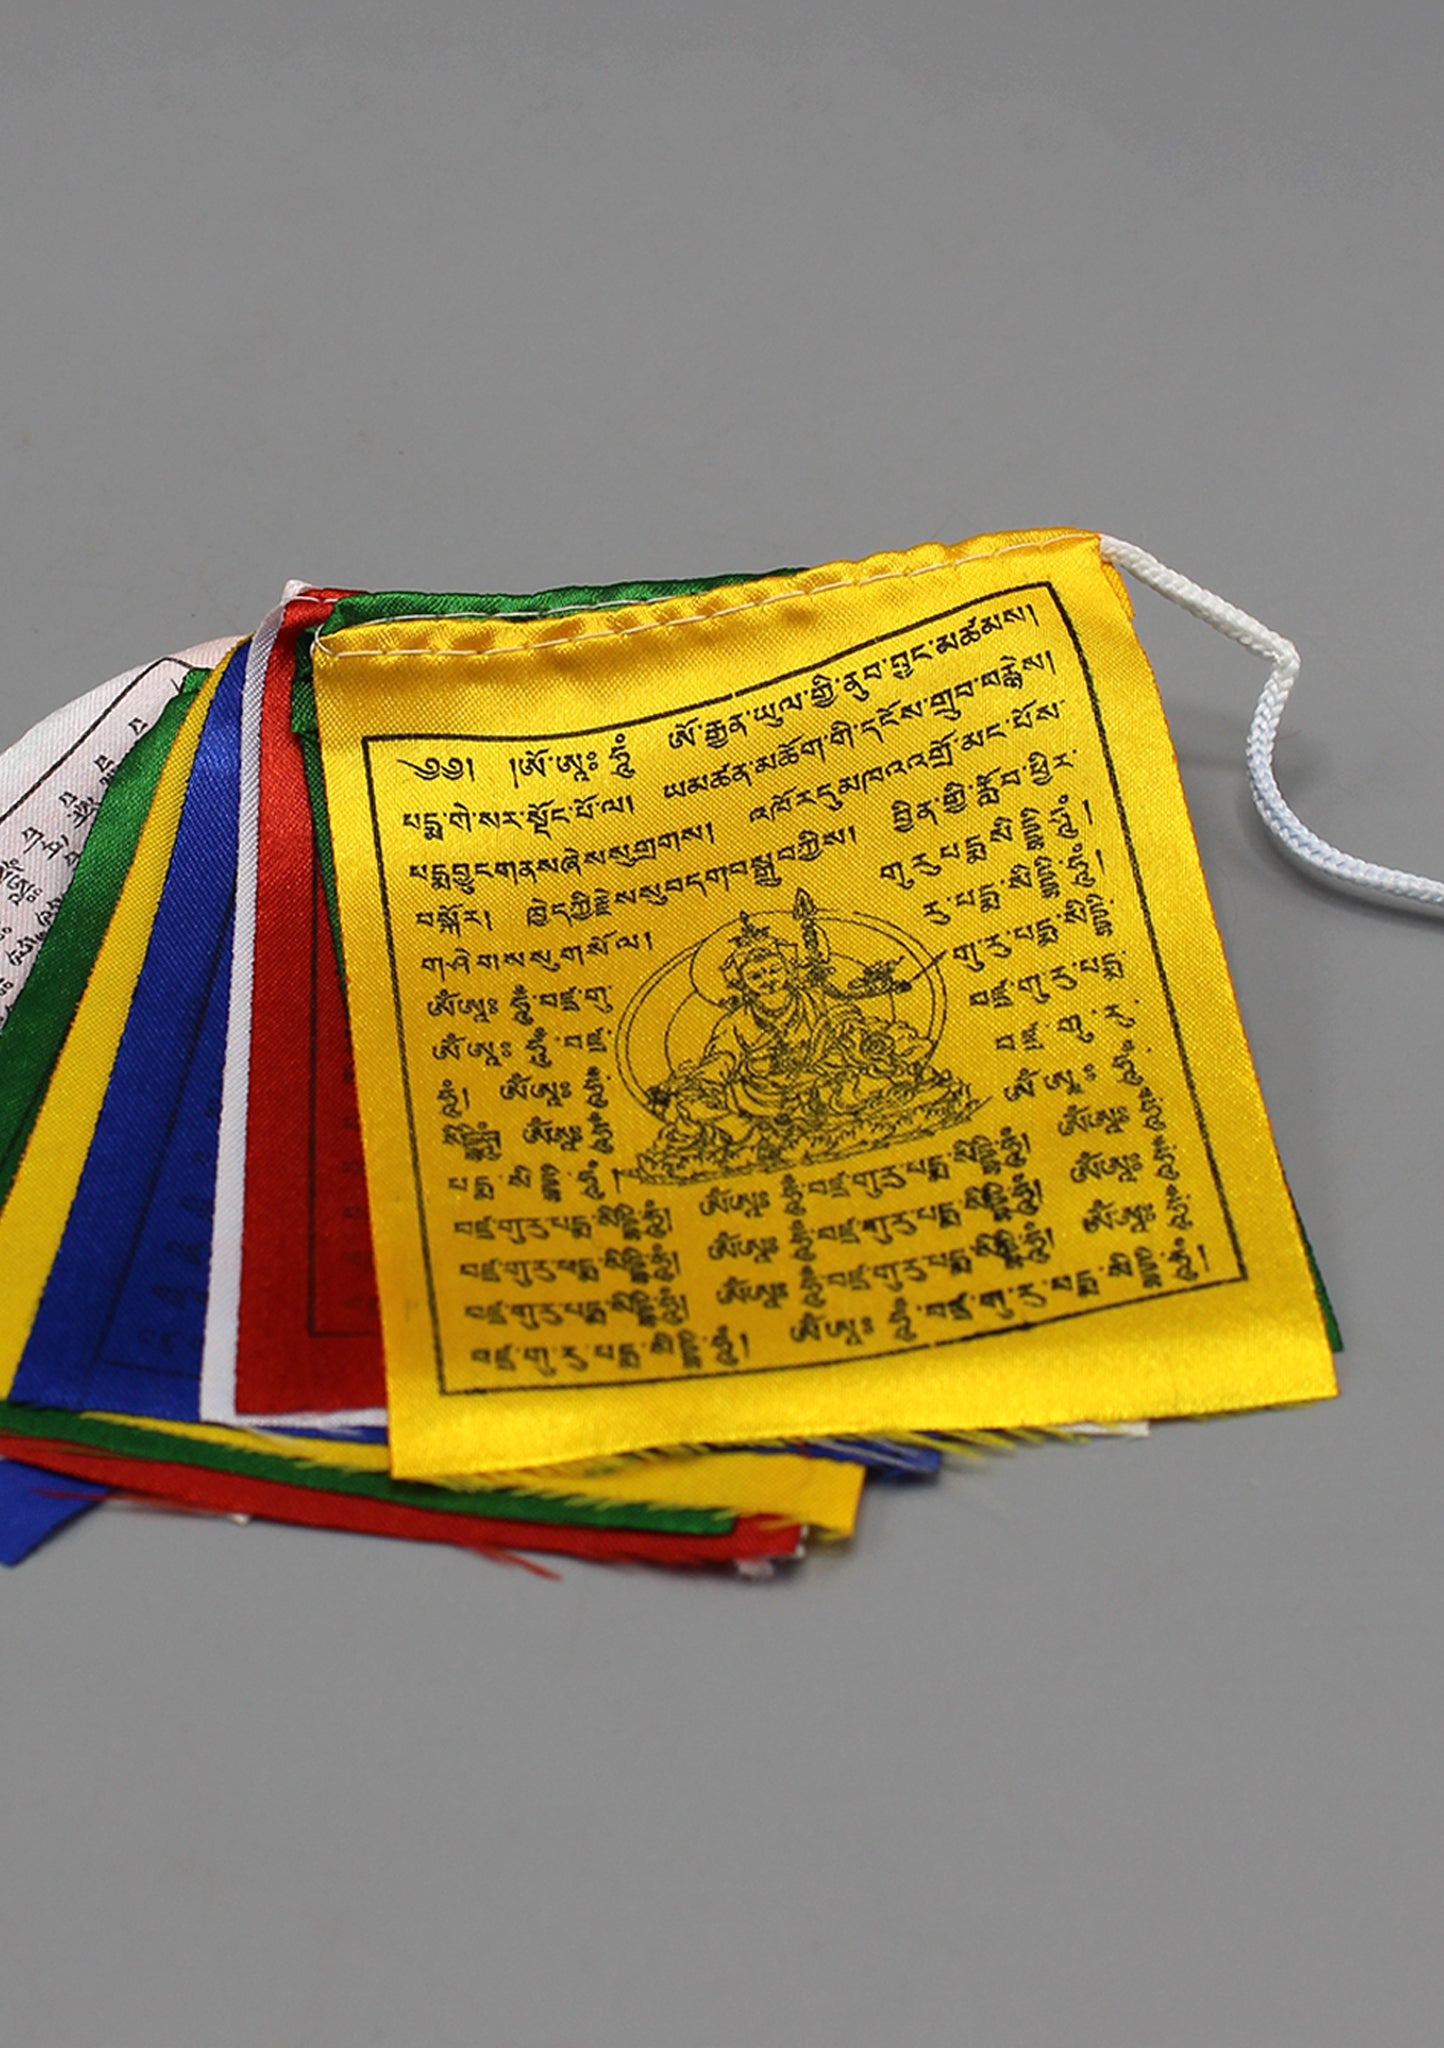 ༄༅། །ཨོཾ་ཨཱཿ ཧཱུྃ ཨོ་རྒྱན་ཡུལ་གྱི་ནུབ་བྱང་མཚམས།
པདྨ་གེ་སར་སྡོང་པོ་ལ། ཡམཚན་མཆོག་གི་དངོས་གྲུབ་བརྙེས།
པདྨ་བྱུང་གནས་ཞེས་སུ་གྲགས། འཁོར་དུ་མཁའ་འགྲོ་མང་པོས་
བསྐོར། ཁྱེད་ཀྱི་རྗེས་སུ་བདག་བསྒྲུབ་ཀྱིས། བྱིན་གྱི་རློབ་ཕྱིར་
གཤེགས་སུ་གསོལ། གུ་རུ་པདྨ་སིདྡྷི་ཧཱུྃ།
ཨོཾ་ཨཱཿ ཧཱུྃ་བཛྲ་གུ་ རུ་པདྨ་སིདྡྷི་ཧཱུྃ།
ཨོཾ་ཨཱཿ ཧཱུྃ་བཛྲ་ གུ་རུ་པདྨ་སིདྡྷི་
ཧཱུྃ། ཨོཾ་ཨཱཿ ཧཱུྃ་ བཛྲ་གུ་རུ་པདྨ་
སིདྡྷི་ཧཱུྃ ཨོཾ་ཨཱཿ ཧཱུྃ་ བཛྲ་གུ་རུ་
པདྨ་སིདྡྷི་ཧཱུྃ། ཨོཾ་ཨཱཿ ཧཱུྃ་
བཛྲ་གུ་རུ་པདྨ་སིདྡྷི་ཧཱུྃ། ཨོཾ་ཨཱཿ ཧཱུྃ་བཛྲ་གུ་རུ་པདྨ་སིདྡྷི་ཧཱུྃ། ཨོཾ་ཨཱཿ ཧཱུྃ་
བཛྲ་གུ་རུ་པདྨ་སིདྡྷི་ཧཱུྃ། ཨོཾ་ཨཱཿ ཧཱུྃ་བཛྲ་གུ་རུ་པདྨ་སིདྡྷི་ཧཱུྃ། ཨོཾ་ཨཱཿ ཧཱུྃ་
བཛྲ་གུ་རུ་པདྨ་སིདྡྷི་ཧཱུྃ། ཨོཾ་ཨཱཿ ཧཱུྃ་བཛྲ་གུ་རུ་པདྨ་སིདྡྷི་ཧཱུྃ། ཨོཾ་ཨཱཿ ཧཱུྃ་
བཛྲ་གུ་རུ་པདྨ་སིདྡྷི་ཧཱུྃ། ཨོཾ་ཨཱཿ ཧཱུྃ་བཛྲ་གུ་རུ་པདྨ་སིདྡྷི་ཧཱུྃ།